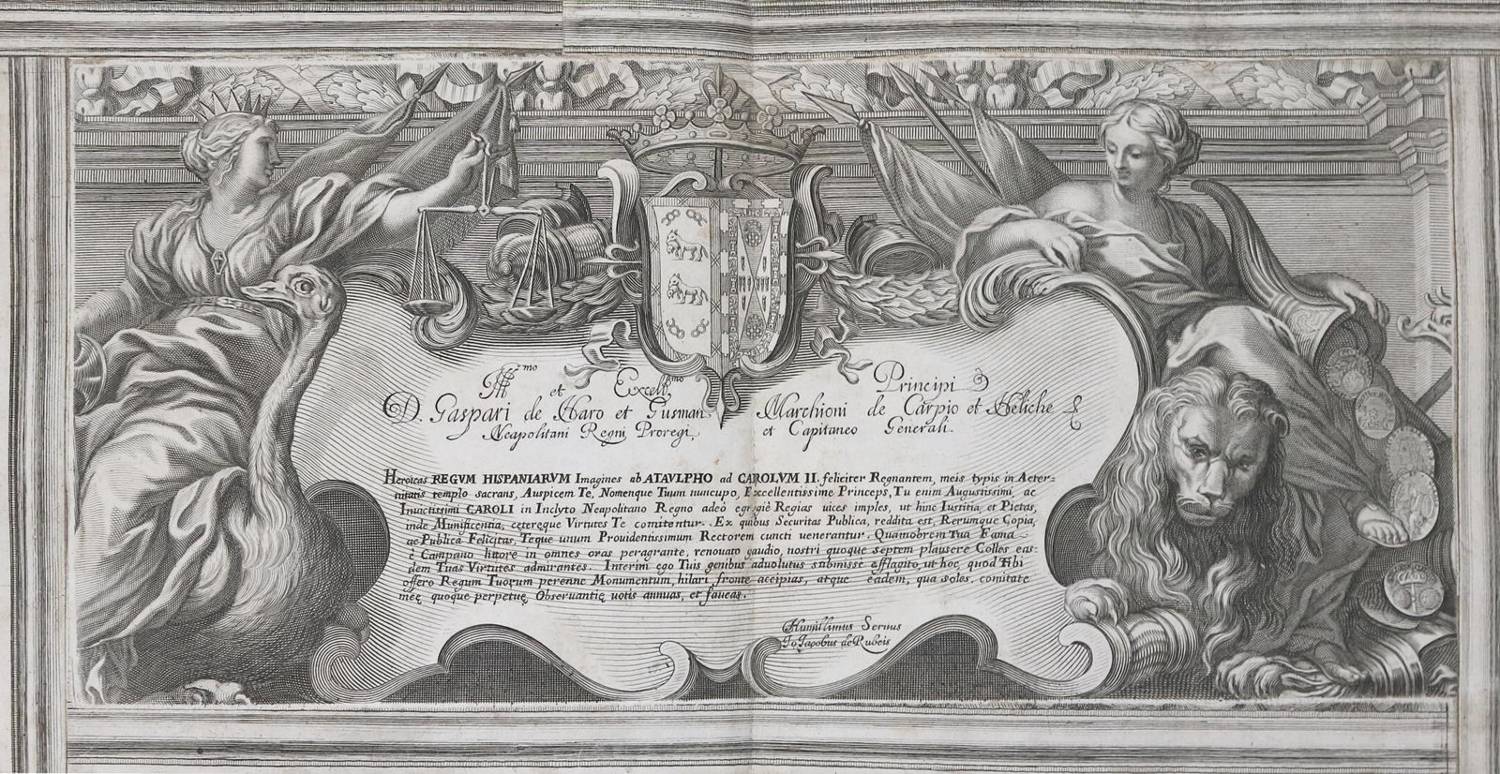 Ill.mo et Excell.mo Principi D
D. Gaspari de Haro et Gusman, Marchioni de Carpio et Heliche &
Neapolitani Regni Proregi, et Capitaneo Generali.
Heroicas REGVM HISPANIARVM Imagines ab ATAVLPHO ad CAROLVM II. feliciter Regnantem, meis typis in Aeter-
nitatis templo sacrans, Auspicem Te, Nomenque Tuum nuncupo, Excellentissime Princeps, Tu enim Augustissimi, ac
Inuictissimi CAROLI in Inclyto Neapolitano Regno adeò egregiè Regias uices imples, ut hinc Iustitia, et Pietas,
inde Munificentia, ceteręque Virtutes Te comitentur. Ex quibus Securitas Publica, reddita est, Rerumque Copia,
ac Publica Felicitas, Teque unum Prouidentissimum Rectorem cuncti uenerantur. Quamobrem Tua Fama
è Campano littore in omnes oras peragrante, renouato gaudio, nostri quoque septem plausere Colles eas-
dem Tuas Virtutes admirantes. Interim ego Tuis genibus aduolutus submisse efflagito, ut hoc, quod Tibi
offero Regum Tuorum perenne Monumentum, hilari fronte accipias, atque eadem, qua soles, comitate
meę quoque perpetuę Obseruantię uotis annuas, et faueas.
Humillimus Seruus
Io Jacobus de Rubeis